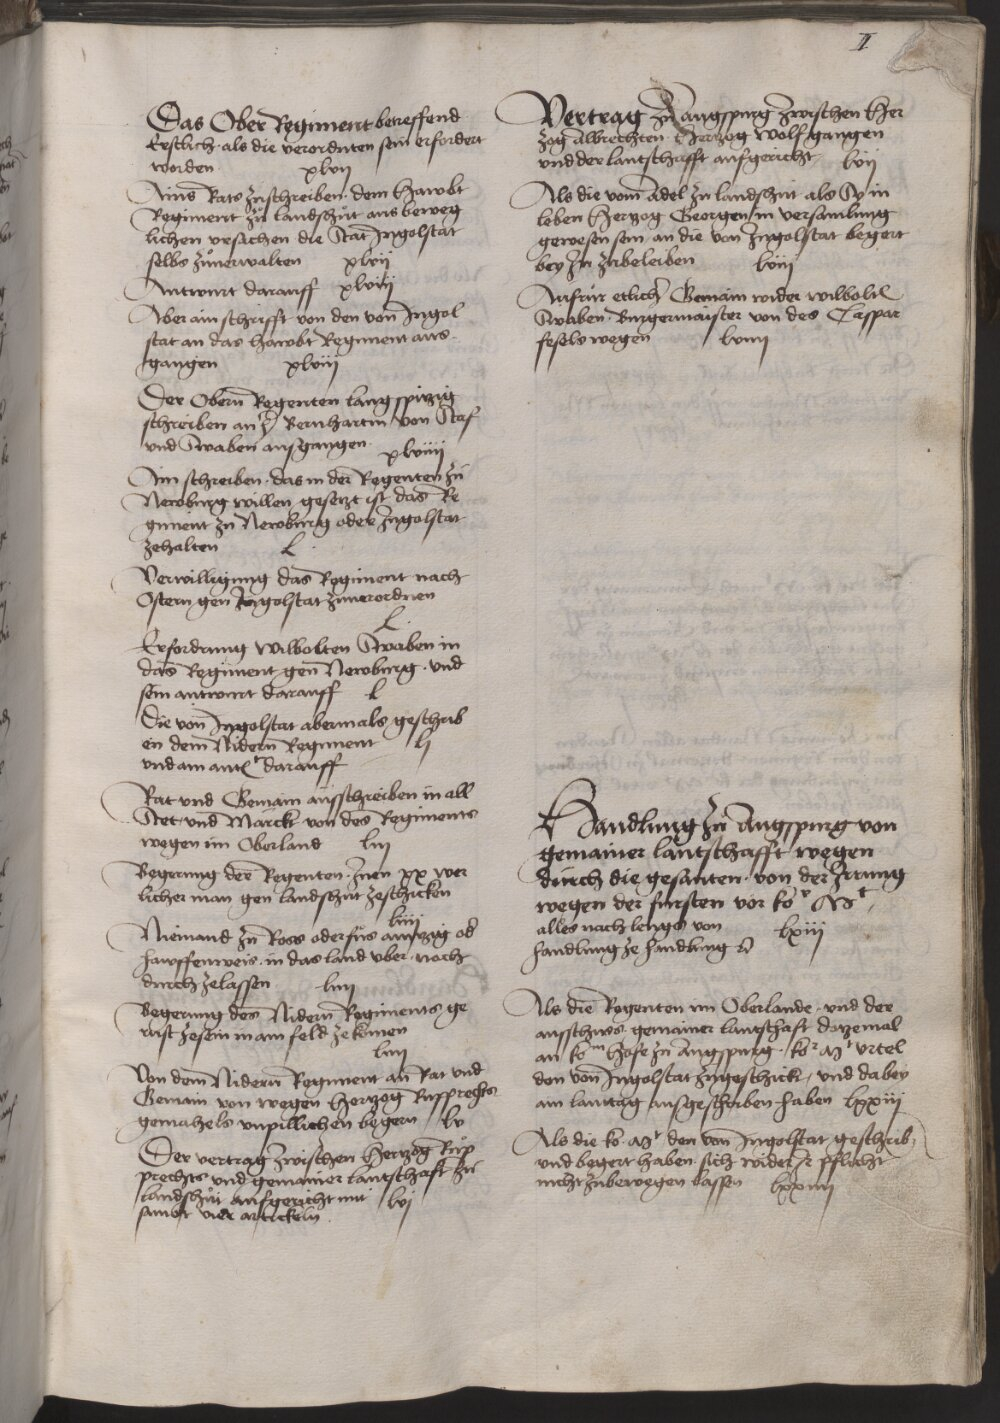 II
Das Ober Regiment betreffend
Erstlich als die verordnten sein erfordert
worden xlvij
Ains Rats zuschreiben dem Hawbt
Regiment zu landshut aus beweg
lichen vrsachen die Stat Ingolstat
selbs zuuerwalten xlvij
Antwurt darauff xlviij
Aber ain schrifft von den von Ingol
stat an das hawbt Regiment aus
gangen xlviij
Der Obern Regenten lang spitzig
schreiben an Bernhartin von Stauf
vnd Swaben ausgangen xlviiij
Ain schreiben das in der Regenten zu
Newburg willen gesetzt ist das Re
giment zu Newburg oder Ingolstat
zehalten L
Verwilligung das Regiment nach
Ostern gen Ingolstat zuuerordnen
L
Erfordrung Wilbolten Swaben in
das Regiment gen Newburg vnd
sein antwurt darauff L
Die von Ingolstat abermals geschrib
en dem Nidern Regiment lj
vnd ain antt darauff
Rat vnd Gemain ausschreiben in all
Stet vnd Märck von des Regiments
wegen im Oberland lij
Begerung der Regenten Inen xx wer
licher man gen landshut zeschicken
liiij
Niemand zu Ross oder fus aintzig od
hauffenweis in das land vber noch
durch zelassen liiij
Begerung des Nidern Regiments ge
rust zesein in ain feld ze komen
liiij
Von dem Nidern Regiment an Rat vnd
Gemain von wegen Hertzog Ruprechts
gemahels vnpillichen begern lv
Der vertrag zwischen Hertzog Rup
prechts vnd gemainer lantschaft zu
landshut aufgericht mit lvj
sambt vier artickeln
Vertrag zu Augspurg zwischen Her
zog Albrechten Hertzog Wolfgangen
vnd der lantschafft aufgericht lvij
Als die vom Adel zu landshut als Sy in
leben Hertzog Georgen in versamlung
gewesen sein an die von Ingolstat begert
bey In zubeleiben lviij
Aufrur etlicher Gemain wider Wilbold
Swaben Burgermaister von des Caspar
fesels wegen lviiij
Handlung zu Augspurg von
gemainer lantschafft wegen
durch die gesanten von der Irrung
wegen der fursten vor ko r Mt
alles nach lengs von lxiij
handlung ze handlung
Als die Regenten im Oberlande vnd der
ausschuss gemainer lantschaft dazemal
an ko m Hofe zu Augspurg ko r Mt vrtel
den von Ingolstat zugeschickt vnd dabey
ain lanttag ausgeschriben haben lxxiij
Als die ko Mt den von Ingolstat geschrib
vnd begert haben sich wider Ir pflicht
nicht zubewegen lassen lxxiiij